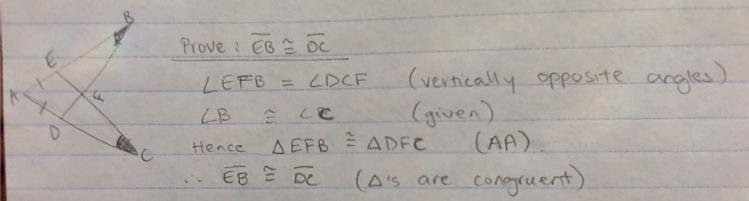 B
E
A
F
D
C
Prove : E̅B̅ ≅ D̅C̅
∠EFB = ∠DCF (vertically opposite angles)
∠B ≅ ∠C (given)
Hence △EFB ≅ △DFC (AA).
∴ E̅B̅ ≅ D̅C̅ (△'s are congruent)